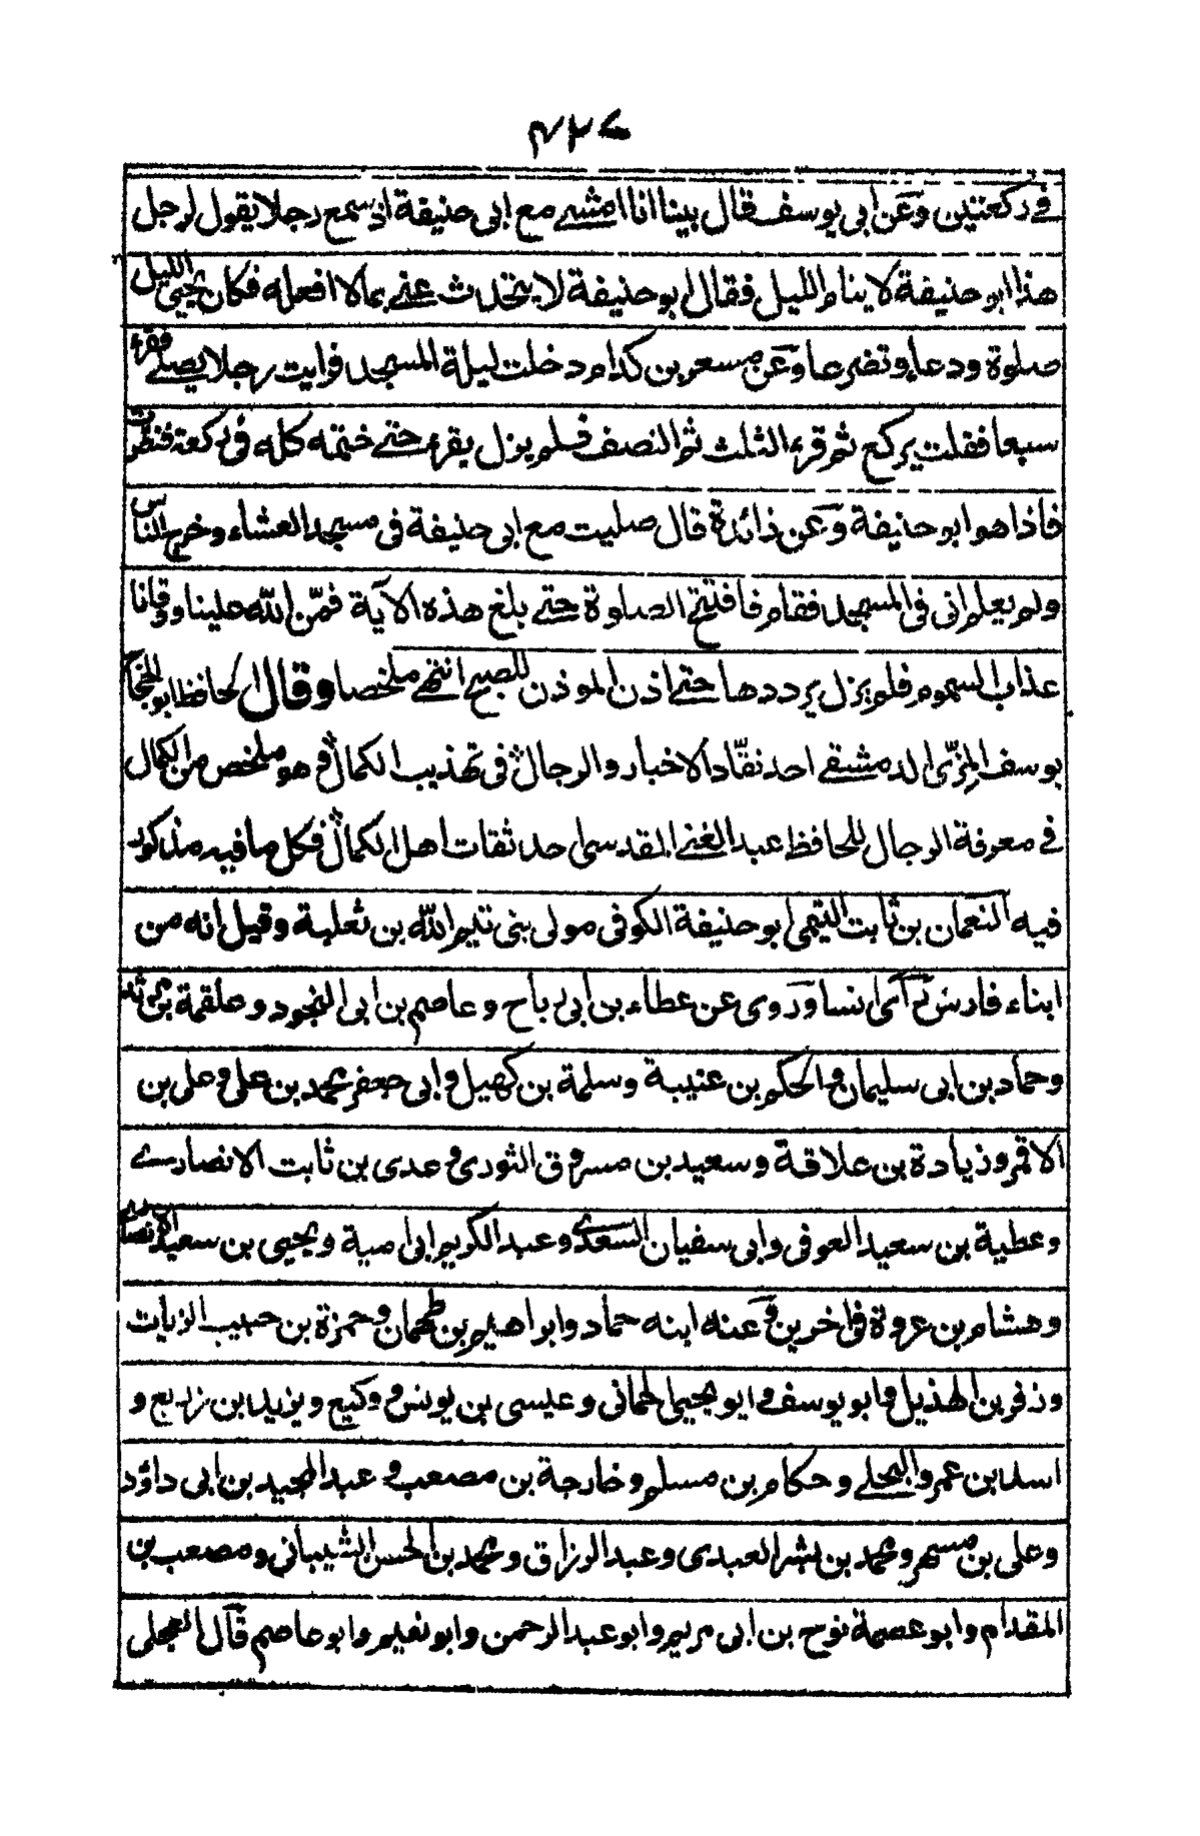 ۴۲۷
في ركعتين وعن ابي يوسف قال بينا انا امشي مع ابي حنيفة اذ سمع رجلا يقول لرجل
هذا ابو حنيفة لا ينام الليل فقال ابو حنيفة لا يتحدث عني بما لا افعله فكان يحيى الليل
صلوة ودعاء وتضرعا وعن مسعر بن كدام دخلت ليلة المسجد فرايت رجلا يصلي فقرء
سبعا فقلت يركع ثم قرء الثلث ثم النصف فلم يزل يقرء حتى ختمه كله في ركعة فنظرت
فاذا هو ابو حنيفة وعن زائدة قال صليت مع ابي حنيفة في مسجد العشاء وخرج الناس
ولم يعلم انى في المسجد فقام فافتتح الصلوة حتى بلغ هذه الآية فمنّ الله علينا ووقانا
عذاب السموم فلم يزل يرددها حتى اذن الموذن للصبح انتهى ملخصا وقال الحافظ ابو الحجاج
يوسف المِزّى الدمشقي احد نقّاد الاخبار والرجال في تهذيب الكمال وهو ملخص من الكمال
في معرفة الرجال للحافظ عبد الغني المقدسى احد ثقات اهل الكمال فكل ما فيه مذكور
فيه النعمان بن ثابت التيمى ابو حنيفة الكوفى مولى بنى تيم الله بن ثعلبة وقيل انه من
ابناء فارس رآى انسا وروى عن عطاء بن ابى رباح وعاصم بن ابى النجود وعلقمة بن مرثد
وحماد بن ابى سليمان والحكم بن عتيبة وسلمة بن كهيل وابى جعفر محمد بن على وعلى بن
الاقمر وزيادة بن علاقة وسعيد بن مسروق الثورى وعدى بن ثابت الانصارے
وعطية بن سعيد العوفى وابى سفيان السعدى وعبد الكريم ابى امية ويحيى بن سعيد الانصارے
وهشام بن عروة فى اخرين وعنه ابنه حماد وابراهيم بن طهمان وحمزة بن حبيب الزيات
وزفر بن الهذيل وابو يوسف وابو يحيى الحمانى وعيسى بن يونس ووكيع ويزيد بن زريع و
اسد بن عمرو البجلي وحكام بن مسلم وخارجة بن مصعب وعبد المجيد بن ابى داؤد
وعلى بن مسهر ومحمد بن بشر العبدى وعبد الرزاق ومحمد بن الحسن الشيبانى ومصعب بن
المقدام وابو عصمة نوح بن ابى مريم وابو عبد الرحمن وابو نعيم وابو عاصم قال العجلى